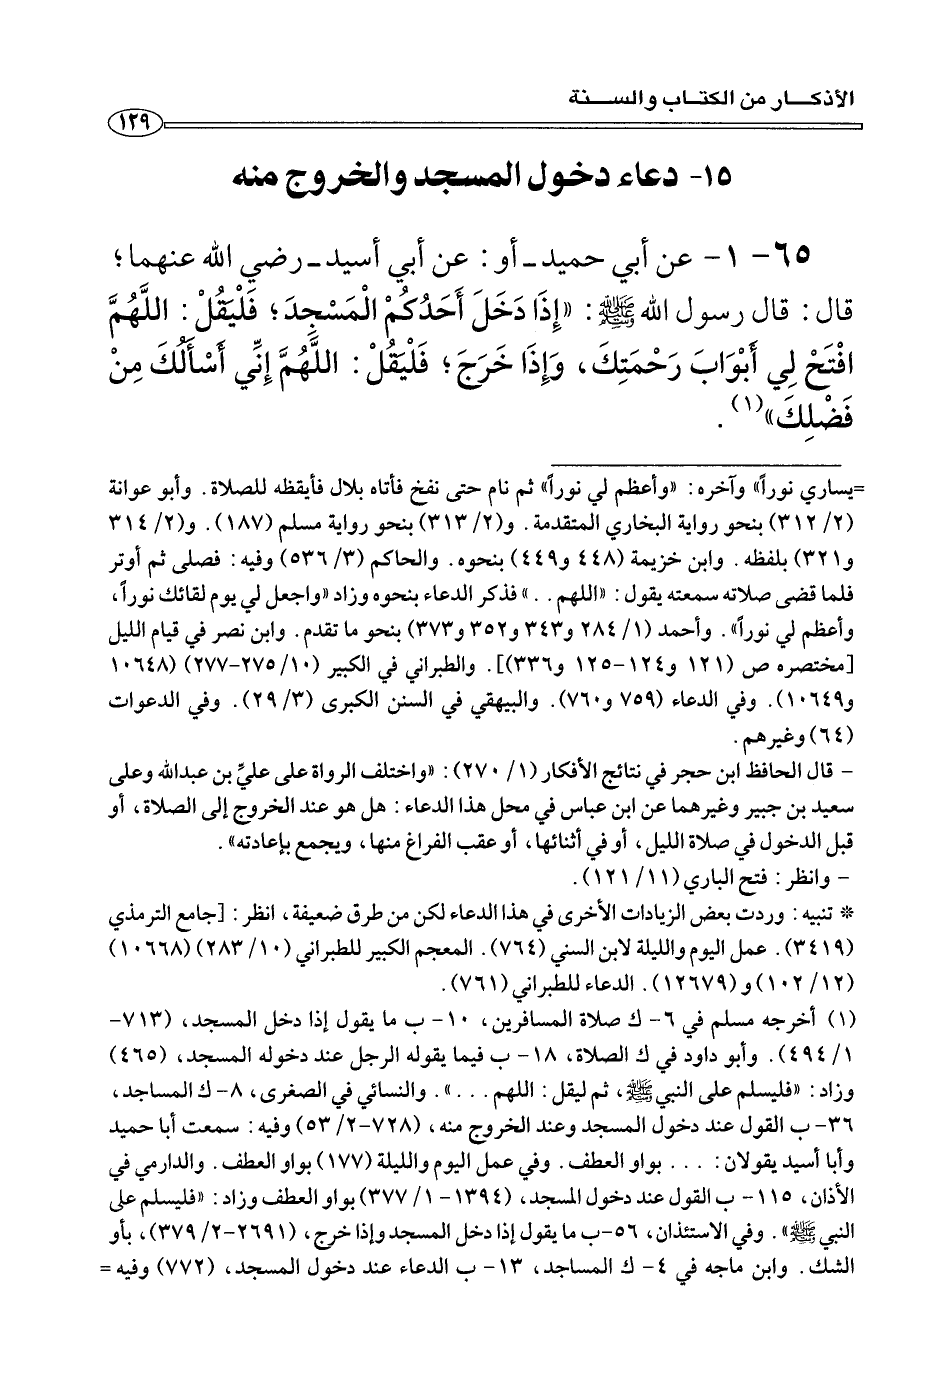 الأذكـــار من الكتـاب والســـنة
١٢٩
١٥- دعاء دخول المسجد والخروج منه
٦٥- ١- عن أبي حميد ـ أو: عن أبي أسيد ـ رضي الله عنهما؛
قال: قال رسول الله ﷺ: «إِذَا دَخَلَ أَحَدُكُمْ الْمَسْجِدَ؛ فَلْيَقُلْ: اللَّهُمَّ
افْتَحْ لِي أَبْوَابَ رَحْمَتِكَ، وَإِذَا خَرَجَ؛ فَلْيَقُلْ: اللَّهُمَّ إِنِّي أَسْأَلُكَ مِنْ
فَضْلِكَ»(١).
=يساري نوراً» وآخره: «وأعظم لي نوراً» ثم نام حتى نفخ فأتاه بلال فأيقظه للصلاة. وأبو عوانة
(٢/ ٣١٢) بنحو رواية البخاري المتقدمة. و(٢/ ٣١٣) بنحو رواية مسلم (١٨٧). و(٢/ ٣١٤
و٣٢١) بلفظه. وابن خزيمة (٤٤٨ و٤٤٩) بنحوه. والحاكم (٣/ ٥٣٦) وفيه: فصلى ثم أوتر
فلما قضى صلاته سمعته يقول: «اللهم . .» فذكر الدعاء بنحوه وزاد «واجعل لي يوم لقائك نوراً،
وأعظم لي نوراً». وأحمد (١/ ٢٨٤ و٣٤٣ و٣٥٢ و٣٧٣) بنحو ما تقدم. وابن نصر في قيام الليل
[مختصره ص (١٢١ و١٢٤-١٢٥ و٣٣٦)]. والطبراني في الكبير (١٠/ ٢٧٥-٢٧٧) (١٠٦٤٨
و١٠٦٤٩). وفي الدعاء (٧٥٩ و٧٦٠). والبيهقي في السنن الكبرى (٣/ ٢٩). وفي الدعوات
(٦٤) وغيرهم.
- قال الحافظ ابن حجر في نتائج الأفكار (١/ ٢٧٠): «واختلف الرواة على عليِّ بن عبدالله وعلى
سعيد بن جبير وغيرهما عن ابن عباس في محل هذا الدعاء: هل هو عند الخروج إلى الصلاة، أو
قبل الدخول في صلاة الليل، أو في أثنائها، أو عقب الفراغ منها، ويجمع بإعادته».
- وانظر: فتح الباري (١١/ ١٢١).
* تنبيه: وردت بعض الزيادات الأخرى في هذا الدعاء لكن من طرق ضعيفة، انظر: [جامع الترمذي
(٣٤١٩). عمل اليوم والليلة لابن السني (٧٦٤). المعجم الكبير للطبراني (١٠/ ٢٨٣) (١٠٦٦٨)
(١٢/ ١٠٢) و(١٢٦٧٩). الدعاء للطبراني (٧٦١).
(١) أخرجه مسلم في ٦- ك صلاة المسافرين، ١٠- ب ما يقول إذا دخل المسجد، (٧١٣-
١/ ٤٩٤). وأبو داود في ك الصلاة، ١٨- ب فيما يقوله الرجل عند دخوله المسجد، (٤٦٥)
وزاد: «فليسلم على النبي ﷺ، ثم ليقل: اللهم . . .». والنسائي في الصغرى، ٨- ك المساجد،
٣٦- ب القول عند دخول المسجد وعند الخروج منه، (٧٢٨-٢/ ٥٣) وفيه: سمعت أبا حميد
وأبا أسيد يقولان: . . . بواو العطف. وفي عمل اليوم والليلة (١٧٧) بواو العطف. والدارمي في
الأذان، ١١٥- ب القول عند دخول المسجد، (١٣٩٤- ١/ ٣٧٧) بواو العطف وزاد: «فليسلم على
النبي ﷺ». وفي الاستئذان، ٥٦-ب ما يقول إذا دخل المسجد وإذا خرج، (٢٦٩١-٢/ ٣٧٩)، بأو
الشك. وابن ماجه في ٤- ك المساجد، ١٣- ب الدعاء عند دخول المسجد، (٧٧٢) وفيه =